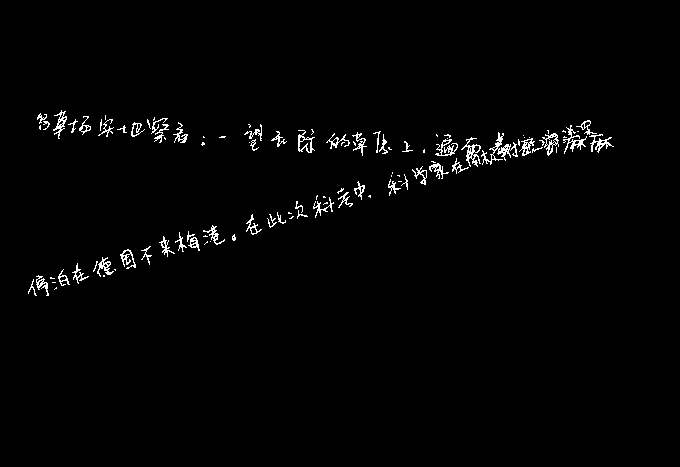 草场实地察看:一望无际的草原上,遍布
停泊在德国不来梅港。在此次科考中,科学家在